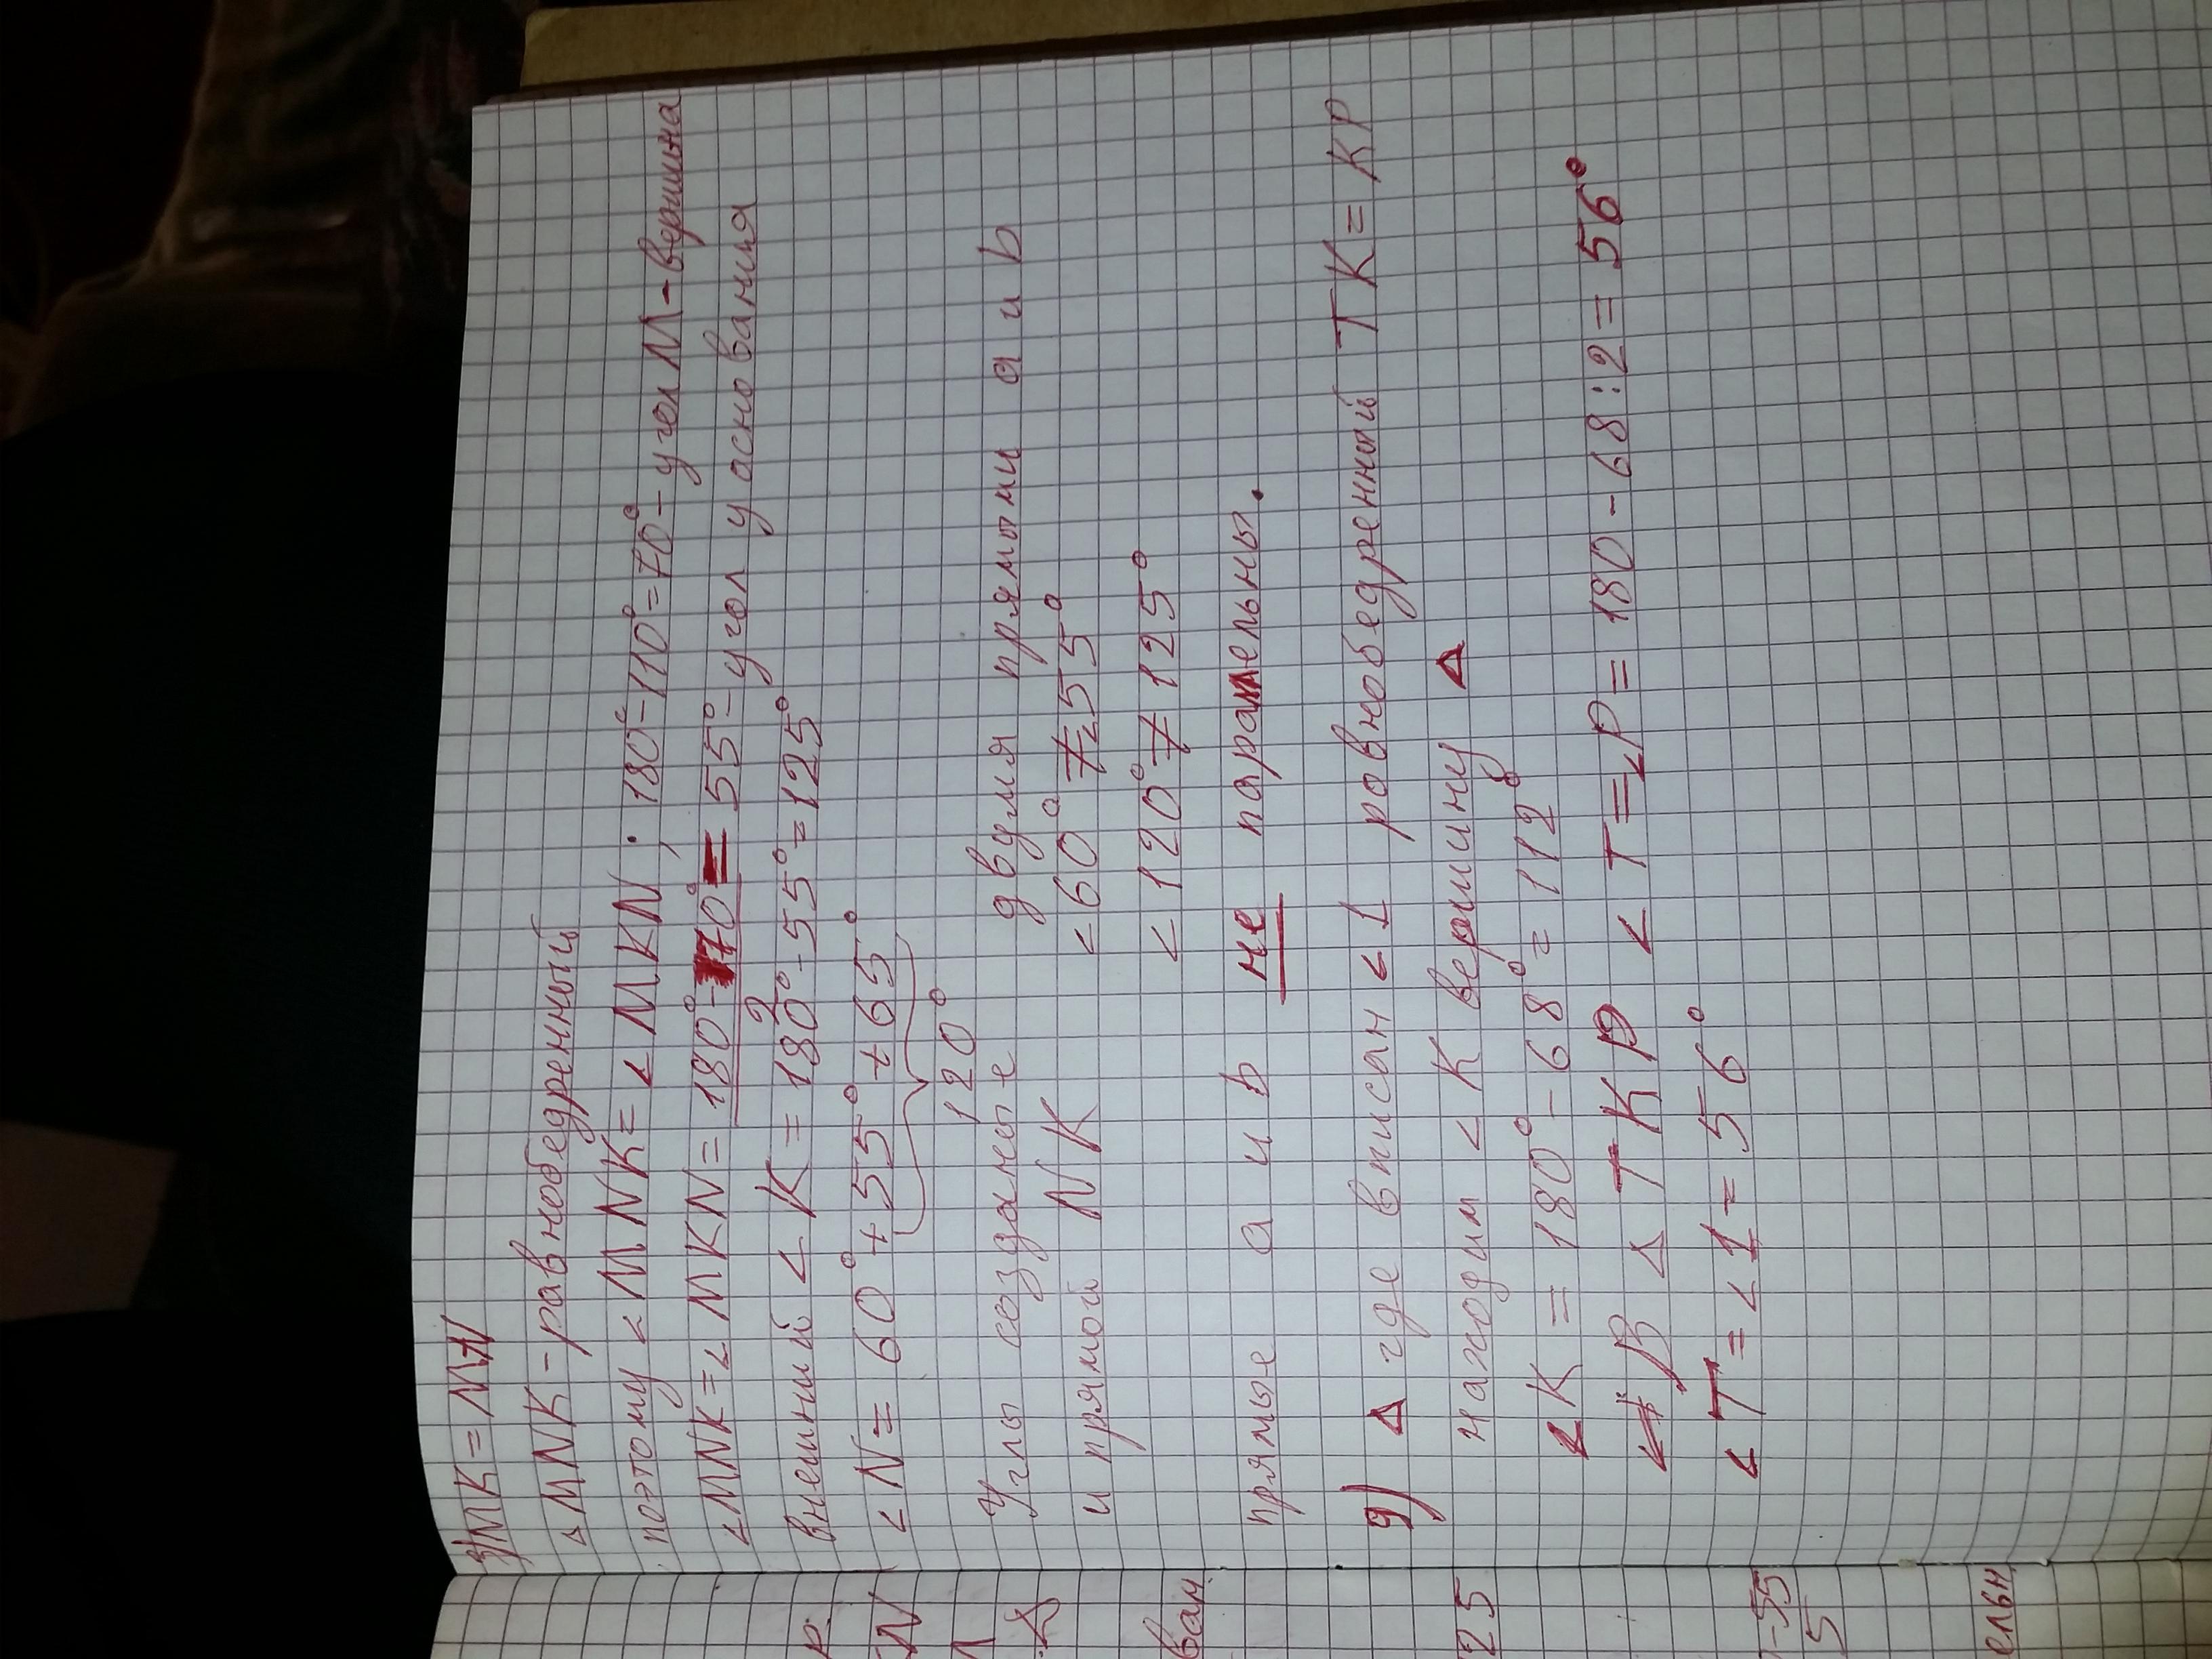 з) MK = MN
△ MNK - равнобедренный
поэтому < MNK = < MKN; 180° - 110° = 70° - угол M - вершина
< MNK = < MKN = 180° - 70° = 55° - угол у основания
2
внешний < K = 180° - 55° = 125°
< N = 60° + 55° + 65°
120°
Углы созданые двумя прямыми a и b
и прямой NK < 60° ≠ 55°
< 120° ≠ 125°
прямые a и b не паралельны.
9) △ где вписан < 1 ровнобедренный TK = KP
находим < K вершину △
< K = 180° - 68° = 112°
В △ TKP < T = < P = 180 - 68 : 2 = 56°
< T = < 1 = 56°
P.
N
Л
ван
25
- 55
5
ельн